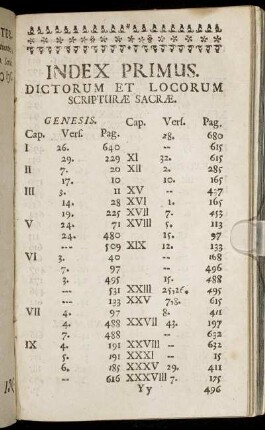 INDEX PRIMUS.
DICTORUM ET LOCORUM
SCRIPTURÆ SACRÆ.
GENESIS.
Cap. Vers. Pag.
I 26. 640
29. 229
II 7. 20
17. 10
III 3. 11
14. 28
19. 225
V 24. 71
24. 480
--- 509
VI 3. 40
7. 97
3. 495
--- 531
--- 133
VII 4. 97
4. 488
7. 488
IX 4. 191
5. 191
6. 185
-- 616
Cap. Vers. Pag,
28. 680
-- 615
XI 32. 615
XII 2. 285
10. 165
XV --
XVI 1. 165
XVII 7. 453
XVIII 5. 113
15. 97
XIX 12. 133
-- 168
-- 496
15. 488
XXIII 25,26. 495
XXV 7,8. 615
8. 411
XXVII 43. 197
-- 632
XXVIII -- 632
XXXI -- 15
XXXV 29. 411
XXXVIII 7. 175
Yy 496